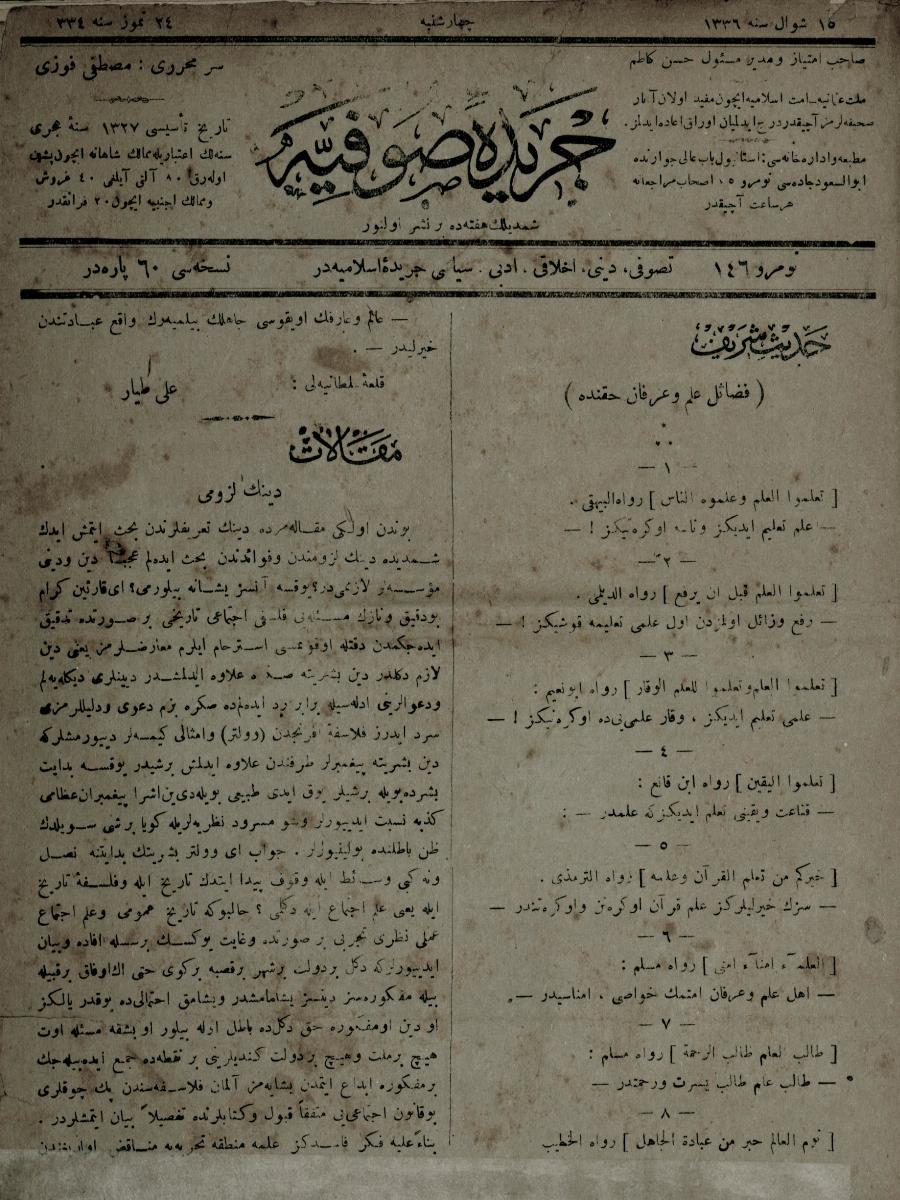 ١٥ شوال سنه ١٣٣٦
چهارشنبه
٢٤ تموز سنه ٣٣٤
صاحب امتیاز و مدیر مسئول حسن کاظم
ملت عثمانیه امت اسلامیه ایچون مفید اولان آثار
صحیفه‌لرمز آچیقدر درج ایدلمیان اوراق اعاده ایدلمز.
مطبعه و اداره خانه‌سی: استانبول باب عالی جوارنده
ابوالسعود جاده‌سی نومرو ١٥ اصحاب مراجعاته
هر ساعت آچیقدر
جریدهٔ صوفیه
شمدیلك هفته‌ده بر نشر اولنور
سر محرری : مصطفی فوزی
تاریخ تأسیسی ١٣٢٧ سنهٔ هجری
سنه‌لك اعتباریله ممالك شاهانه ایچون پشین
اوله‌رق ٨٠ آلتی آیلغی ٤٠ غروش
و ممالك اجنبیه ایچون ٢٠ فرانقدر
نومرو ١٤٦
تصوفی، دینی، اخلاقی، ادبی، سیاسی جریدهٔ اسلامیه‌در
نسخه‌سی ٦٠ پاره‌در
حدیث شریف
( فضائل علم وعرفان حقنده )
— ١ —
[ تعلموا العلم وعلموه الناس ] رواه البیهقی .
— علم تعلیم ایدیکز و ناسه اوکره‌تیکز ! —
— ٢ —
[ تعلموا العلم قبل ان یرفع ] رواه الدیلمی .
— رفع و زائل اولمزدن اول علمی تعلیمه قوشیکز ! —
— ٣ —
[ تعلموا العلم وتعلموا للعلم الوقار ] رواه ابونعیم :
— علمی تعلیم ایدیکز ، وقار علمی‌یی‌ده اوکره‌نیکز ! —
— ٤ —
[ تعلموا الیقین ] رواه ابن قانع :
— قناعت و یقینی تعلم ایدیکز که علمدر — :
— ٥ —
[ خیرکم من تعلم القرآن وعلمه ] رواه الترمذی .
— سزك خیرلیلرکز علم قرآن اوکره‌نن و اوکره‌تندر —
— ٦ —
[ العلمآء امنآء امتی ] رواه مسلم :
— اهل علم وعرفان امتمك خواصی ، امناسیدر —
— ٧ —
[ طالب العلم طالب الرحمة ] رواه مسلم :
— طالب علم طالب یسرت و رحمتدر —
— ٨ —
[ نوم العالم خیر من عبادة الجاهل ] رواه الخطیب
— عالم وعارفك اویقوسی جاهلك بیلمیه‌رك واقع عبادتندن
خیرلیدر — .
قلعهٔ سلطانیه‌لی :
علی طیار
مقالات
دینك لزومی
بوندن اولکی مقاله‌مزده دینك تعریفلرندن بحث ایتمش ایدك
شمدیده دینك لزومندن و فوائدندن بحث ایده‌لم عجبا دین و دینی
مؤسسه‌لر لازمی‌در؟ یوقسه آنسز یشانه بیلورمی؟ ای قارئین کرام
بو دقیق و نازك مسئله‌یی فلسفی اجتماعی تاریخی بر صورتده تدقیق
ایده‌جکمدن دقتله اوقونمسی استرحام ایلرم معارضلرمز یعنی دین
لازم دکلدر دین بشریته صکره علاوه ایدلمشدر دیینلری دیکله‌یه‌لم
و دعوالرینی ادله‌سیله برابر رد ایده‌لم‌ده صکره بزم دعوی و دلیللرمزی
سرد ایدرز فلاسفهٔ افرنجدن (وولتر) و امثالی کیمسه‌لر دییورمشلرکه
دین بشریته پیغمبرلر طرفندن علاوه ایدلمش برشیدر یوقسه بدایت
بشرده بویله برشیلر یوق ایدی طبیعی بویله دی‌ین اشرا پیغمبران عظامی
کذبه نسبت ایدییورلر و شو مسرود نظریه‌لریله کویا برشی سویلدك
ظن باطلنده بولنیورلر . جواب ای وولتر بشریتك بدایتنه نصل
و نه کبی وسائط ایله وقوف پیدا ایتدك تاریخ ایله و فلسفهٔ تاریخ
ایله یعنی علم اجتماع ایله دکلمی ؟ حالبوکه تاریخ عمومی و علم اجتماع
عملی نظری تجربی بر صورتده و غایت یوکسك برسسله افاده و بیان
ایدییورلرکه دکل بر دولت بر شهر بر قصبه بر کوی حتی اك اوفاق بر قبیله
بیله مفکوره‌سز دینسز یشامامشدر و یشامق احتمالی‌ده یوقدر یالکز
او دین او مفکوره حق دکل‌ده باطل اوله بیلور او بشقه مسئله اوت
هیچ بر ملت و هیچ بر دولت کندیلرینی بر نقطه‌ده جمع ایده‌بیله‌جك
بر مفکوره ابداع ایتمدن یشایه‌مز آلمان فلاسفه‌سندن پك چوقلری
بو قانون اجتماعی‌یی متفقاً قبول و کتابلرنده تفصیلاً بیان ایتمشلردر .
بناءً علیه فکر فاسدکز علمه منطقه تجربه‌یه مناقض